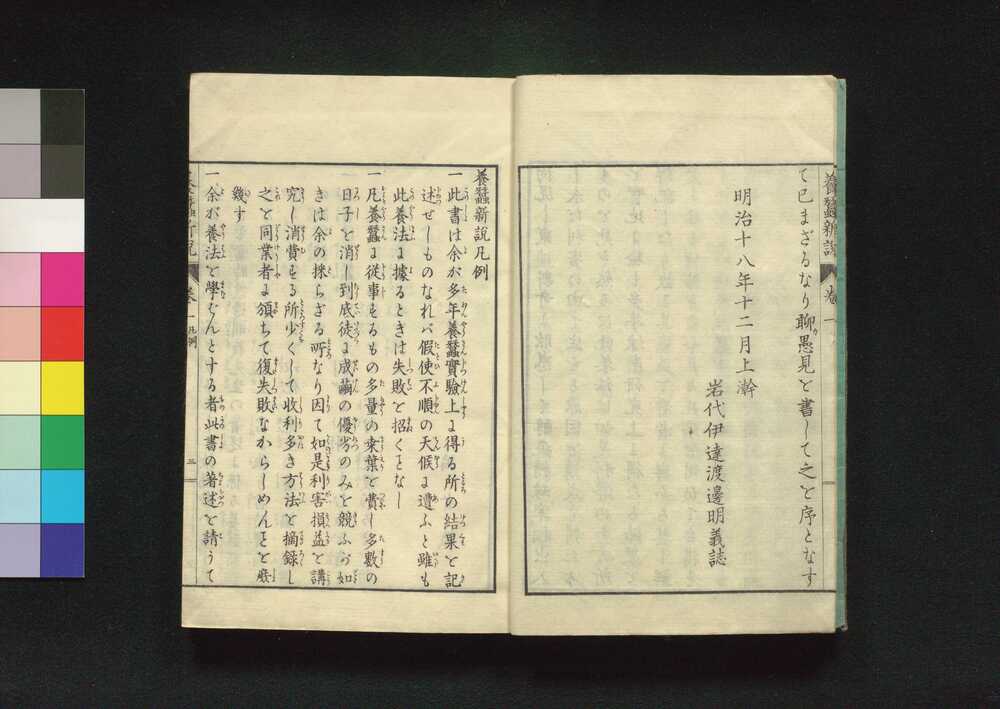 て已まざるなり聊愚見を書して之を序となす
明治十八年十二月上澣
岩代伊達渡邊明義誌
養蠶新説凡例
一此書は余が多年養蠶實驗上に得る所の結果を記
述せしものなれバ假使不順の天候に遭ふと雖も
此養法に據るときは失敗を招くことなし
一凡養蠶に從事するもの多量の桒葉を費し多數の
日子を消し到底徒に成繭の優劣のみを競ふが如
きは余の採らざる所なり因て如是利害損益を講
究し消費する所少くして收利多き方法を摘録し
之を同業者に頒ちて復失敗なからしめんことを庶
幾す
一余が養法を學ばんとする者此書の著述を請うて
養蠶新説
卷一
凡例
三